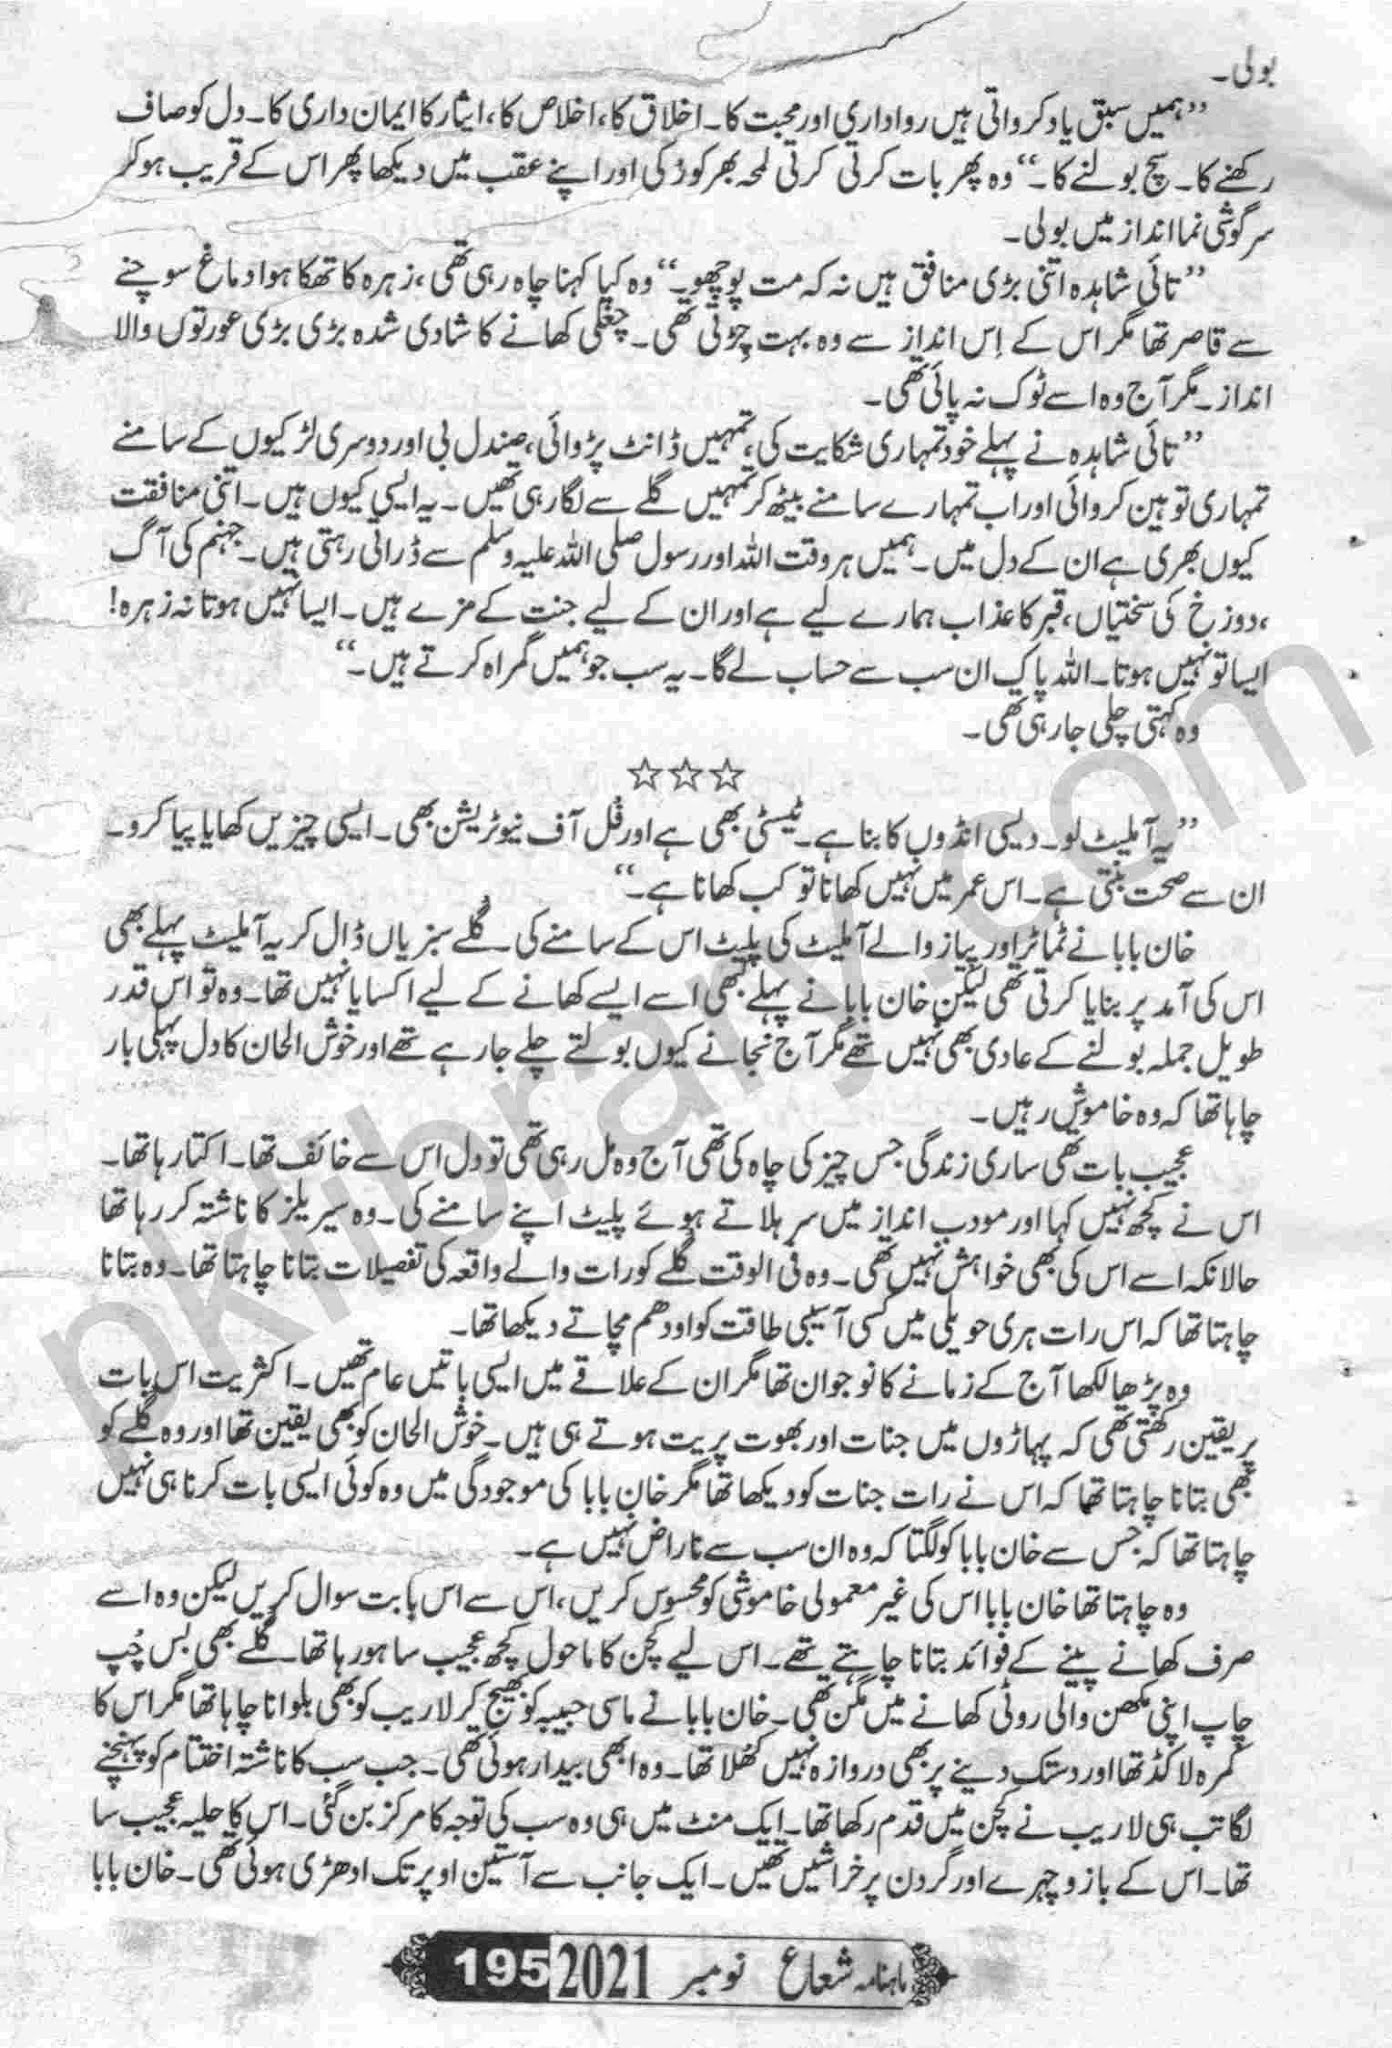 بولی۔
”ہمیں سبق یاد کرواتی ہیں رواداری اور محبت کا۔ اخلاق کا، اخلاص کا، ایثار کا ایمان داری کا۔ دل کو صاف
رکھنے کا۔ سچ بولنے کا۔“ وہ پھر بات کرتی کرتی لمحہ بھر کو رُکی اور اپنے عقب میں دیکھا پھر اس کے قریب ہو کر
سرگوشی نما انداز میں بولی۔
”تائی شاہدہ اتنی بڑی منافق ہیں نہ کہ مت پوچھو۔“ وہ کیا کہنا چاہ رہی تھی، زہرہ کا تھکا ہوا دماغ سوچنے
سے قاصر تھا مگر اس کے اِس انداز سے وہ بہت چڑتی تھی۔ چغلی کھانے کا شادی شدہ بڑی بڑی عورتوں والا
انداز۔ مگر آج وہ اسے ٹوک نہ پائی تھی۔
”تائی شاہدہ نے پہلے خود تمہاری شکایت کی، تمہیں ڈانٹ پڑوائی، صندل بی اور دوسری لڑکیوں کے سامنے
تمہاری توہین کروائی اور اب تمہارے سامنے بیٹھ کر تمہیں گلے سے لگا رہی تھیں۔ یہ ایسی کیوں ہیں۔ اتنی منافقت
کیوں بھری ہے ان کے دل میں۔ ہمیں ہر وقت اللہ اور رسول صلی اللہ علیہ وسلم سے ڈراتی رہتی ہیں۔ جہنم کی آگ
،دوزخ کی سختیاں، قبر کا عذاب ہمارے لیے ہے اور ان کے لیے جنت کے مزے ہیں۔ ایسا نہیں ہوتا نہ زہرہ!
ایسا تو نہیں ہوتا۔ اللہ پاک ان سب سے حساب لے گا۔ یہ سب جو ہمیں گمراہ کرتے ہیں۔“
وہ کہتی چلی جا رہی تھی۔
☆☆☆
”یہ آملیٹ لو۔ دیسی انڈوں کا بنا ہے۔ ٹیسٹی بھی ہے اور فُل آف نیوٹریشن بھی۔ ایسی چیزیں کھایا پیا کرو۔
ان سے صحت بنتی ہے۔ اس عمر میں نہیں کھانا تو کب کھانا ہے۔“
خان بابا نے ٹماٹر اور پیاز والے آملیٹ کی پلیٹ اس کے سامنے کی۔ گلے سبزیاں ڈال کر یہ آملیٹ پہلے بھی
اس کی آمد پر بنایا کرتی تھی لیکن خان بابا نے پہلے کبھی اسے ایسے کھانے کے لیے اکسایا نہیں تھا۔ وہ تو اس قدر
طویل جملہ بولنے کے عادی بھی نہیں تھے مگر آج نجانے کیوں بولتے چلے جا رہے تھے اور خوش الحان کا دل پہلی بار
چاہا تھا کہ وہ خاموش رہیں۔
عجیب بات تھی ساری زندگی جس چیز کی چاہ کی تھی آج وہ مل رہی تھی تو دل اس سے خائف تھا۔ اکتا رہا تھا۔
اس نے کچھ نہیں کہا اور مودب انداز میں سر ہلاتے ہوئے پلیٹ اپنے سامنے کی۔ وہ سیریلز کا ناشتہ کر رہا تھا
حالانکہ اسے اس کی بھی خواہش نہیں تھی۔ وہ فی الوقت گلے کو رات والے واقعہ کی تفصیلات بتانا چاہتا تھا۔ وہ بتانا
چاہتا تھا کہ اس رات ہری حویلی میں کسی آسیبی طاقت کو اودھم مچاتے دیکھا تھا۔
وہ پڑھا لکھا آج کے زمانے کا نوجوان تھا مگر ان کے علاقے میں ایسی باتیں عام تھیں۔ اکثریت اس بات
پر یقین رکھتی تھی کہ پہاڑوں میں جنات اور بھوت پریت ہوتے ہی ہیں۔ خوش الحان کو بھی یقین تھا اور وہ گلے کو
بھی بتانا چاہتا تھا کہ اس نے رات جنات کو دیکھا تھا مگر خان بابا کی موجودگی میں وہ کوئی ایسی بات کرنا ہی نہیں
چاہتا تھا کہ جس سے خان بابا کو لگتا کہ وہ ان سب سے ناراض نہیں ہے۔
وہ چاہتا تھا خان بابا اس کی غیر معمولی خاموشی کو محسوس کریں، اس سے اس بابت سوال کریں لیکن وہ اسے
صرف کھانے پینے کے فوائد بتانا چاہتے تھے۔ اس لیے کچن کا ماحول کچھ عجیب سا ہو رہا تھا۔ گلے بھی بس چُپ
چاپ اپنی مکھن والی روٹی کھانے میں مگن تھی۔ خان بابا نے ماسی حبیبہ کو بھیج کر لاریب کو بھی بلوانا چاہا تھا مگر اس کا
کمرہ لاکڈ تھا اور دستک دینے پر بھی دروازہ نہیں کھلا تھا۔ وہ ابھی بیدار ہوئی تھی۔ جب سب کا ناشتہ اختتام کو پہنچنے
لگا تب ہی لاریب نے کچن میں قدم رکھا تھا۔ ایک منٹ میں ہی وہ سب کی توجہ کا مرکز بن گئی۔ اس کا حلیہ عجیب سا
تھا۔ اس کے بازو چہرے اور گردن پر خراشیں تھیں۔ ایک جانب سے آستین اوپر تک ادھڑی ہوئی تھی۔ خان بابا
ماہنامہ شعاع نومبر 2021 195
pklibrary.com